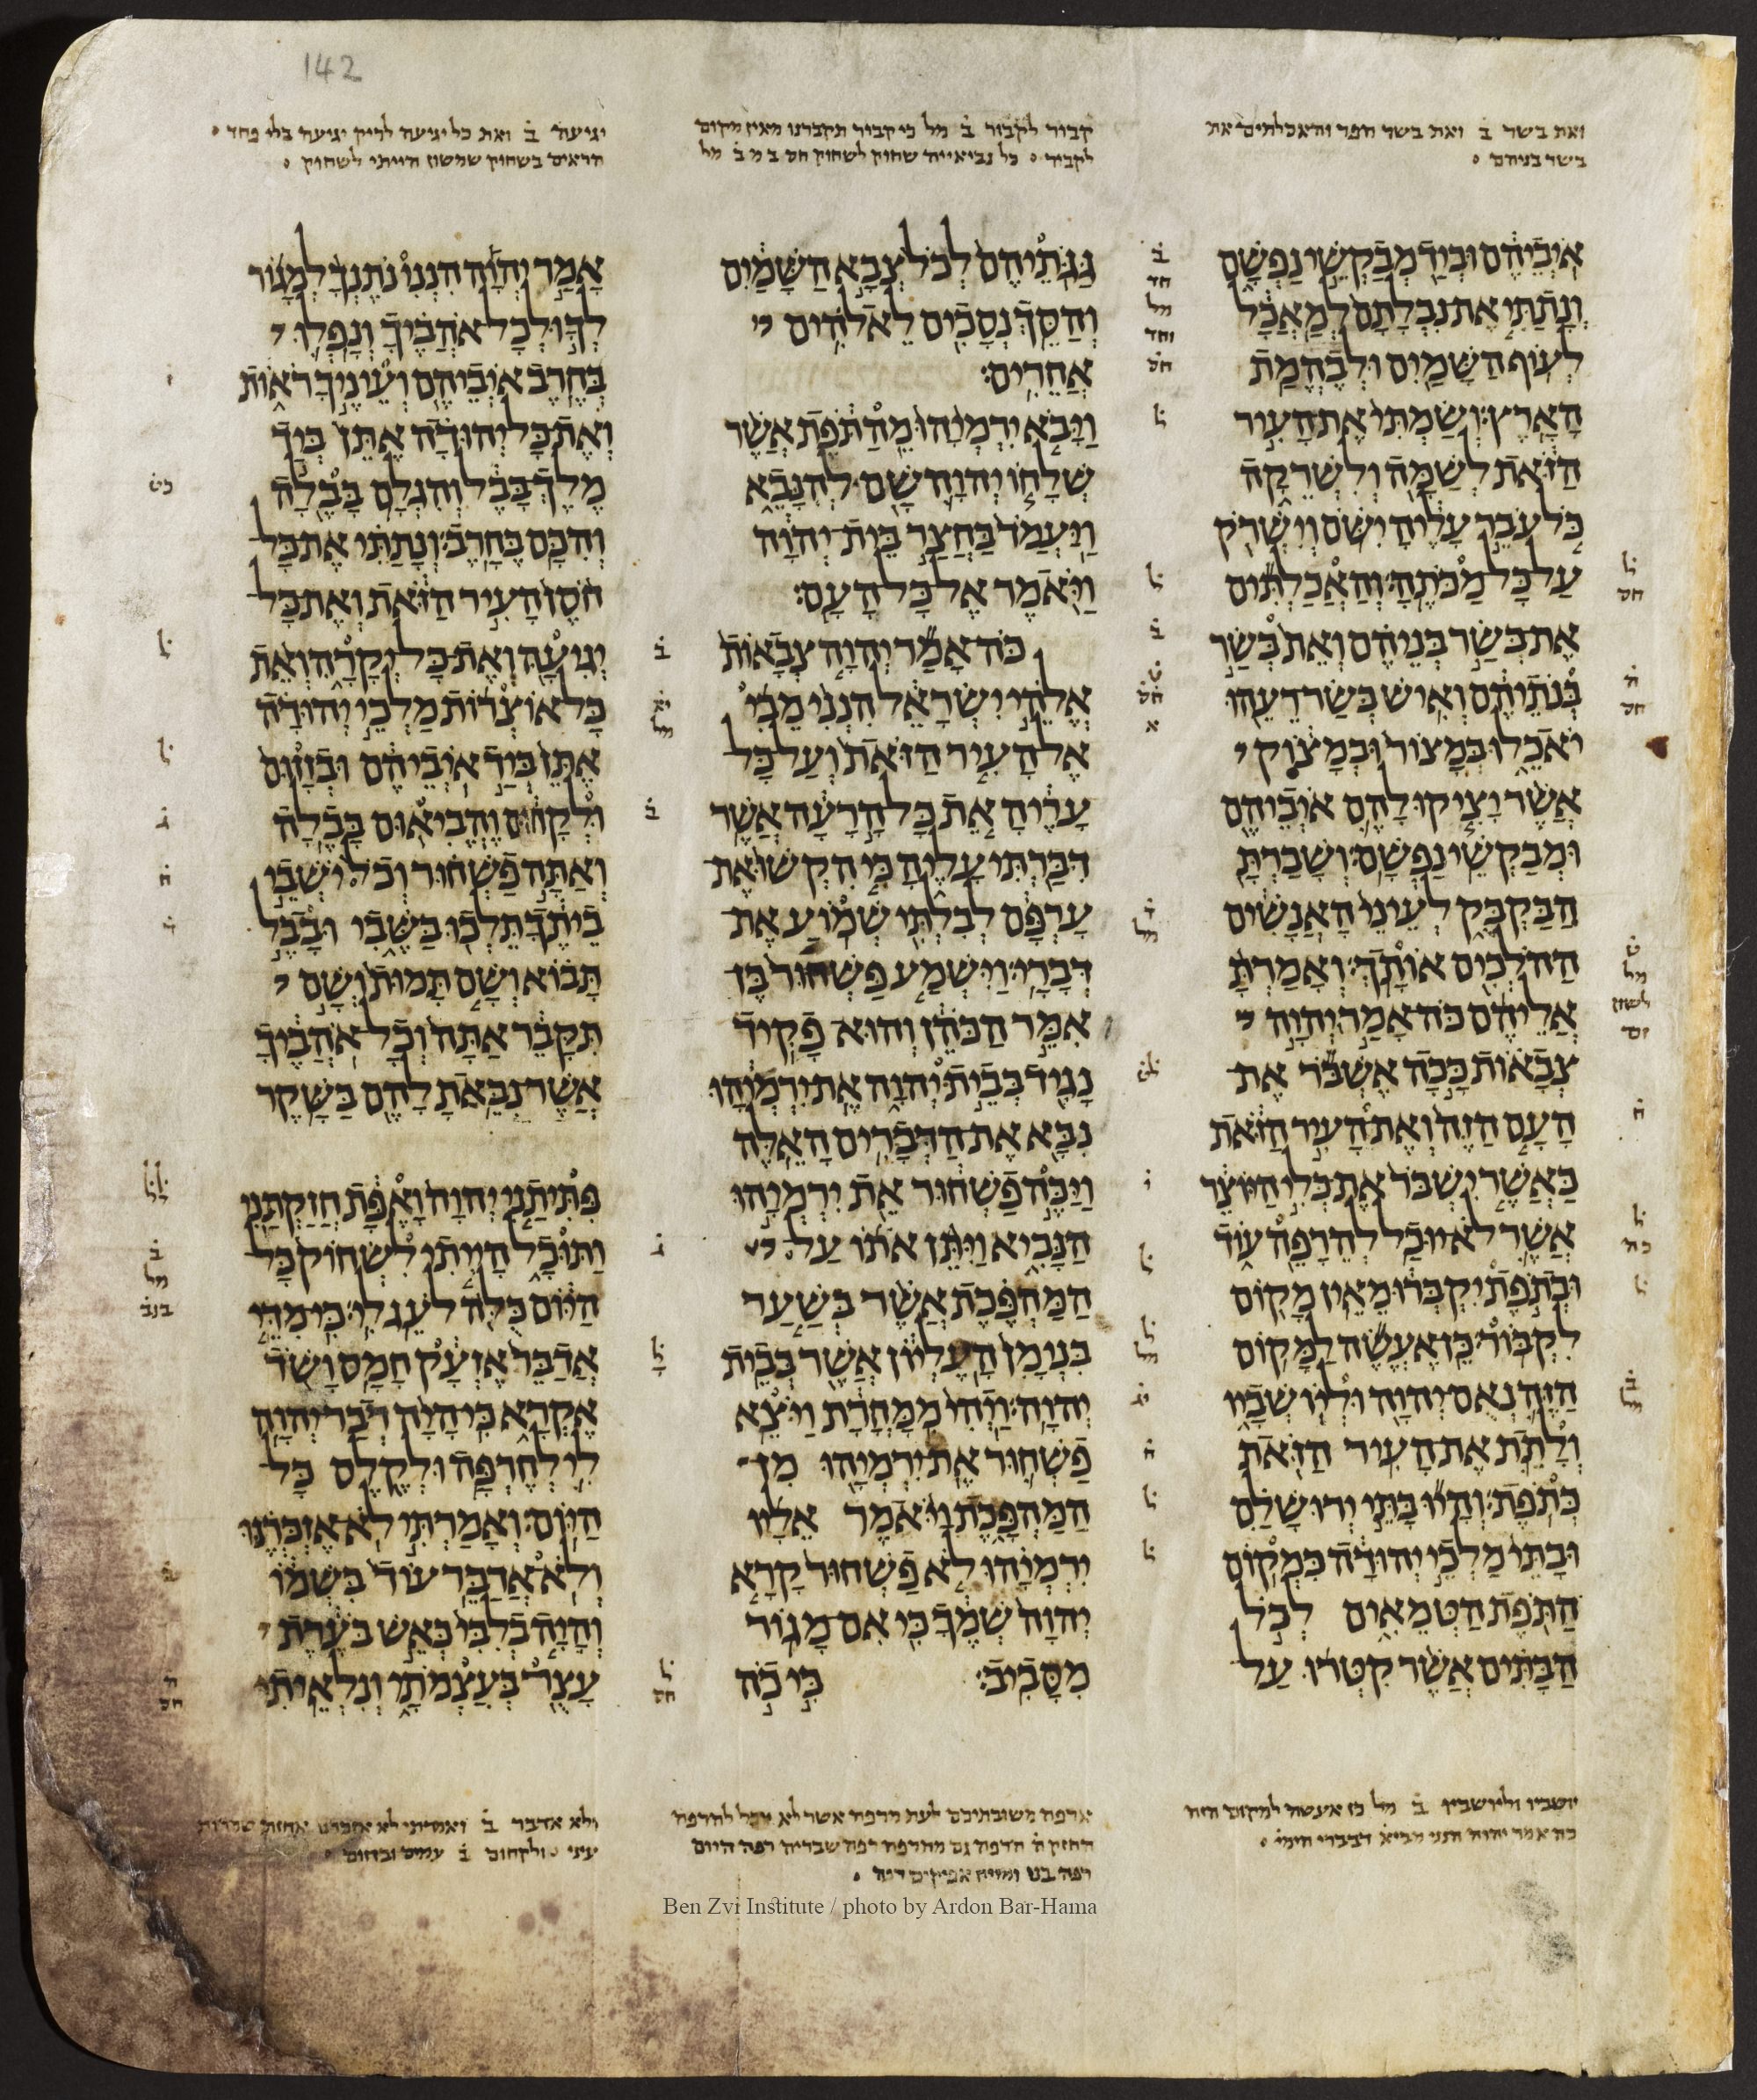 142
ואת בשר ב ואת בשר חפר והאכלתים את
בשר בניהם
קבור לקבור ב מל כי קבור תקברנו מאין מקום
לקבור כל נביאייה שחוק לשחוק חס ב מ ב מל
יגיעה ב ואת כל יגיעה לריק יגיעה בלי פחד
הראים בשחוק שמשון הייתי לשחוק
איביהם וביד מבקשי נפשם
ונתתי את נבלתם למאכל
לעוף השמים ולבהמת
הארץ ושמתי את העיר
הזאת לשמה ולשרקה
כל עבר עליה ישם וישרק
על כל מכתה והאכלתים
את בשר בניהם ואת בשר
בנתיהם ואיש בשר רעהו
יאכלו במצור ובמצוק
אשר יציקו להם איביהם
ומבקשי נפשם ושברת
הבקבק לעיני האנשים
ההלכים אותך ואמרת
אליהם כה אמר יהוה
צבאות ככה אשבר את
העם הזה ואת העיר הזאת
כאשר ישבר את כלי היוצר
אשר לא יוכל להרפה עוד
ובתפת יקברו מאין מקום
לקבור כן אעשה למקום
הזה נאם יהוה וליושביו
ולתת את העיר הזאת
כתפת והיו בתי ירושלם
ובתי מלכי יהודה כמקום
התפת הטמאים לכל
הבתים אשר קטרו על
גגתיהם לכל צבא השמים
והסך נסכים לאלהים
אחרים׃
ויבא ירמיהו מהתפת אשר
שלחו יהוה שם להנבא
ויעמד בחצר בית יהוה
ויאמר אל כל העם׃
כה אמר יהוה צבאות
אלהי ישראל הנני מבי
אל העיר הזאת ועל כל
עריה את כל הרעה אשר
דברתי עליה כי הקשו את
ערפם לבלתי שמוע את
דברי וישמע פשחור בן
אמר הכהן והוא פקיד
נגיד בבית יהוה את ירמיהו
נבא את הדברים האלה
ויכה פשחור את ירמיהו
הנביא ויתן אתו על
המהפכת אשר בשער
בנימן העליון אשר בבית
יהוה ויהי ממחרת ויצא
פשחור את ירמיהו מן
המהפכת ויאמר אליו
ירמיהו לא פשחור קרא
יהוה שמך כי אם מגור
מסביב׃ כי כה
אמר יהוה הנני נתנך למגור
לך ולכל אהביך ונפלו
בחרב איביהם ועיניך ראות
ואת כל יהודה אתן ביד
מלך בבל והגלם בבלה
והכם בחרב ונתתי את כל
חסן העיר הזאת ואת כל
יגיעה ואת כל יקרה ואת
כל אוצרות מלכי יהודה
אתן ביד איביהם ובזזום
ולקחום והביאום בבלה
ואתה פשחור וכל ישבי
ביתך תלכו בשבי ובבל
תבוא ושם תמות ושם
תקבר אתה וכל אהביך
אשר נבאת להם בשקר
פתיתני יהוה ואפת חזקתני
ותוכל הייתי לשחוק כל
היום כלה לעג לי כי מדי
אדבר אזעק חמס ושד
אקרא כי היה דבר יהוה
לי לחרפה ולקלס כל
היום ואמרתי לא אזכרנו
ולא אדבר עוד בשמו
והיה בלבי כאש בערת
עצר בעצמתי ונלאיתי
יושביו וליושביו ב מל כן אעשה למקום הזה
כה אמר יהוה הנני מביא דבדברי הימי
ארפה משובתיכם לעת מרפה אשר לא יוכל להרפה
ולא אדבר ב ואמרתי לא אזכרנו אחזת שמרות
עיני ולקחום ב
Ben Zvi Institute / photo by Ardon Bar-Hama